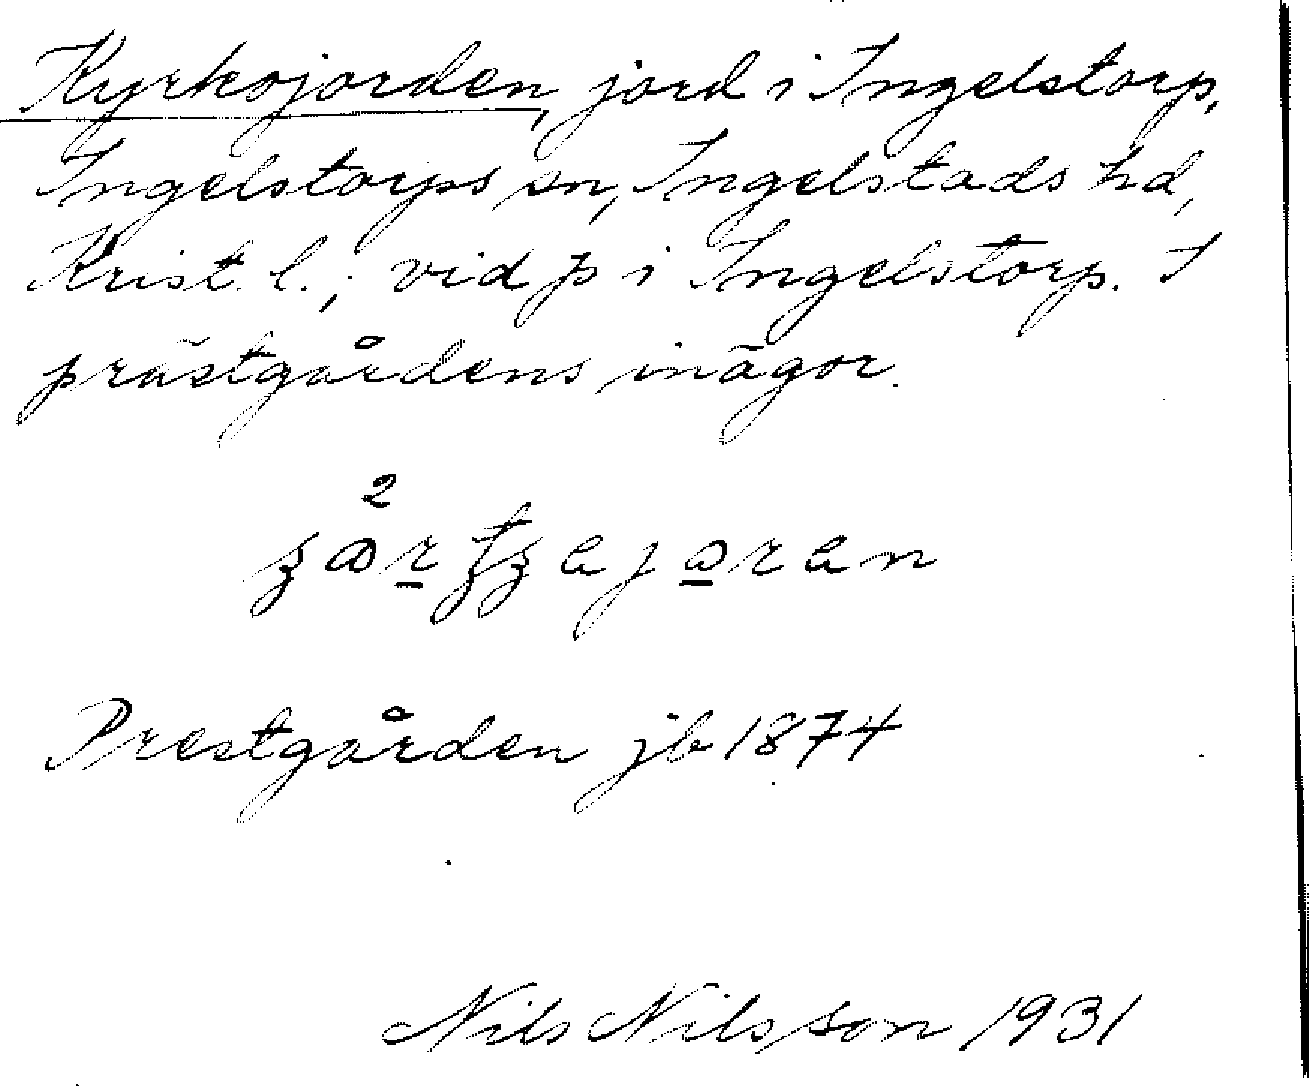 Kyrkojorden, jord i Ingelstorp,
Ingelstorps sn, Ingelstads hd,
Krist. l.; vid p i Ingelstorp. I
prästgårdens inägor.
Prestgården jb 1874
Nils Nilsson 1931